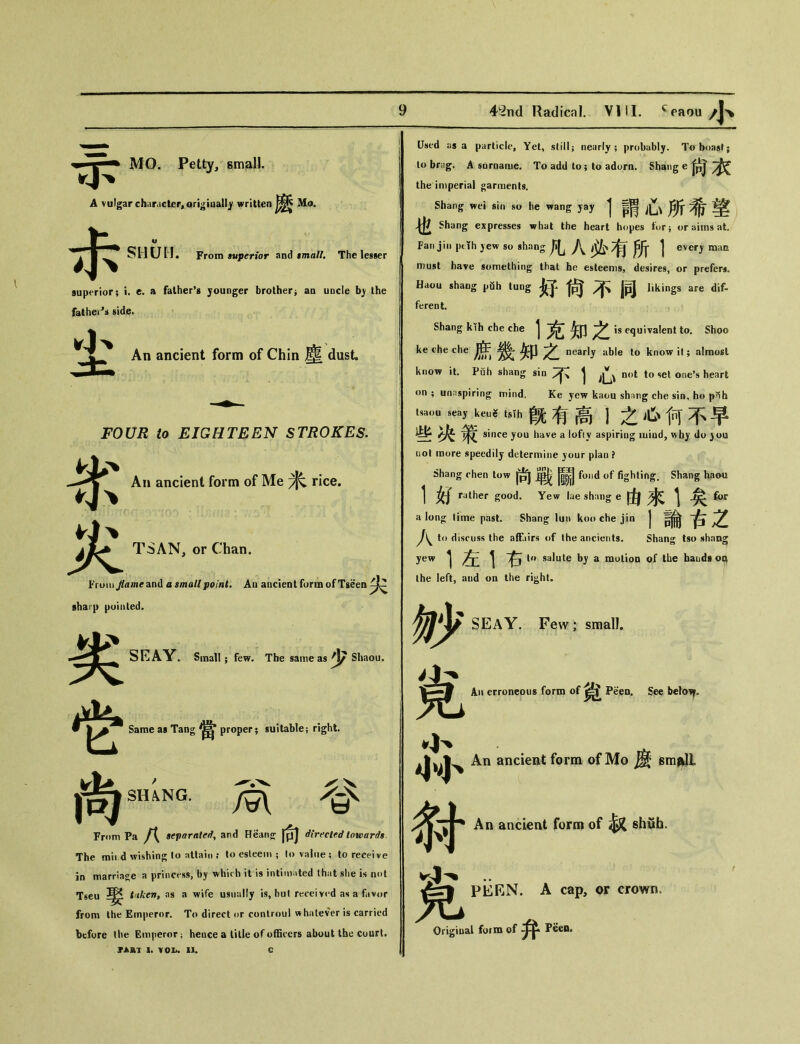 9 42nd Radical. VIII. ʿeaou 小
MO. Petty, small.
A vulgar character, originally written 麽 Mo.
尗 SHŬH. From superior and small. The lesser
superior; i. e. a father's younger brother; an uncle by the
father's side.
尘 An ancient form of Chin 塵 dust.
FOUR to EIGHTEEN STROKES.
An ancient form of Me 米 rice.
尖 TSAN, or Chan.
From flame and a small point. An ancient form of Tsëen 尖
sharp pointed.
SEAY. Small; few. The same as 少 Shaou.
Same as Tang 當 proper; suitable; right.
尚 SHÁNG.
From Pa 八 separated, and Hëang 向 directed towards.
The mind wishing to attain; to esteem; to value; to receive
in marriage a princess, by which it is intimated that she is not
Tseu 娶 taken, as a wife usually is, but received as a favor
from the Emperor. To direct or controul whatever is carried
before the Emperor; hence a title of officers about the court.
PART I. VOL. II. C
Used as a particle, Yet, still; nearly; probably. To boast;
to brag. A surname. To add to; to adorn. Shang e 尙衣
the imperial garments.
Shang wei sin so he wang yay 丨謂心所希望
也 Shang expresses what the heart hopes for; or aims at.
Fan jin peĭh yew so shang 凡人必有所丨 every man
must have something that he esteems, desires, or prefers.
Haou shang pŭh tung 好尙不同 likings are dif-
ferent.
Shang kĭh che che 丨克知之 is equivalent to. Shoo
ke che che 庶幾知之 nearly able to know it; almost
know it. Pŭh shang sin 不丨心 not to set one's heart
on; unaspiring mind. Ke yew kaou shang che sin, ho pŭh
tsaou seay keuĕ tsĭh 旣有高丨之心何不早
些决策 since you have a lofty aspiring mind, why do you
not more speedily determine your plan?
Shang chen tow 尙戰鬬 fond of fighting. Shang haou
丨好 rather good. Yew lae shang e 由來丨矣 for
a long time past. Shang lun koo che jin 丨論古之
人 to discuss the affairs of the ancients. Shang tso shang
yew 丨左丨右 to salute by a motion of the hands on
the left, and on the right.
SEAY. Few; small.
An erroneous form of 覍 Pëen. See below.
An ancient form of Mo 麽 small.
An ancient form of 叔 shŭh.
覍 PËEN. A cap, or crown.
Original form of 弁 Pëen.